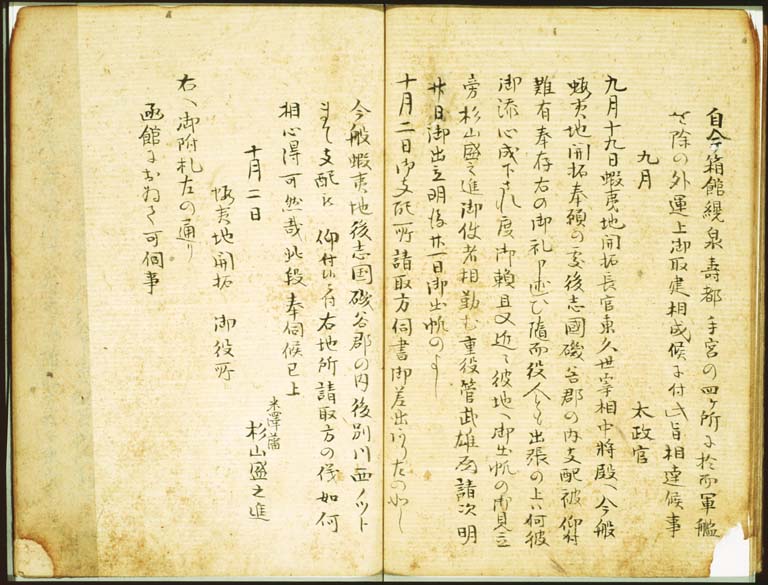 自今箱館幌泉壽都手宮の四ケ所に於而軍艦
を除の外運上御取建相成候に付此旨相達候事
九月
太政官
九月十九日蝦夷地開拓長官東久世宰相中將殿へ今般
蝦夷地開拓奉願の處後志國磯谷郡の内支配被仰付
難有奉存右の御礼申述ひ隨而役人とも出張の上は何彼
御添心成下され度御賴且又近々彼地へ御出帆の御見立
旁杉山盛之進御使者相勤む重役管武雄為諸次明
廿日御出立明後廿一日御出帆のよし
十月二日御支配所請取方伺書御差出有り左の如し
今般蝦夷地後志国磯谷郡の内後別川西ノツト
まて支配被仰付候に付右地所請取方の儀如何
相心得可然哉此段奉伺候已上
米澤藩
十月二日
杉山盛之進
蝦夷地開拓
御役所
右へ御附札左の通り
函館におゐて可伺事